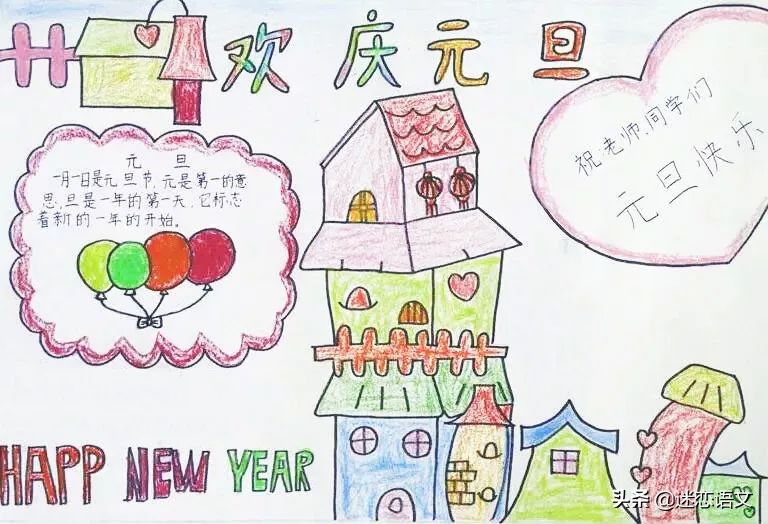 欢庆元旦
祝:老师.同学们
元旦快乐
元 旦
一月一日是元旦节,元是第一的意
思,旦是一年的第一天,它标志
着新的一年的开始。
HAPP NEW YEAR
头条 @迷恋语文